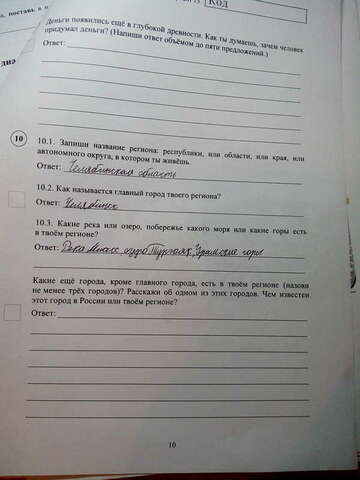 поставь, в
КОД
Деньги появились ещё в глубокой древности. Как ты думаешь, зачем человек
придумал деньги? (Напиши ответ объёмом до пяти предложений.)
Ответ:
10
10.1. Запиши название региона: республики, или области, или края, или
автономного округа, в котором ты живёшь.
Ответ: Челябинская область
10.2. Как называется главный город твоего региона?
Ответ: Челябинск
10.3. Какие река или озеро, побережье какого моря или какие горы есть
в твоём регионе?
Ответ: Река Миасс, озеро Тургояк, Уральские горы
Какие ещё города, кроме главного города, есть в твоём регионе (назови
не менее трёх городов)? Расскажи об одном из этих городов. Чем известен
этот город в России или твоём регионе?
Ответ:
10